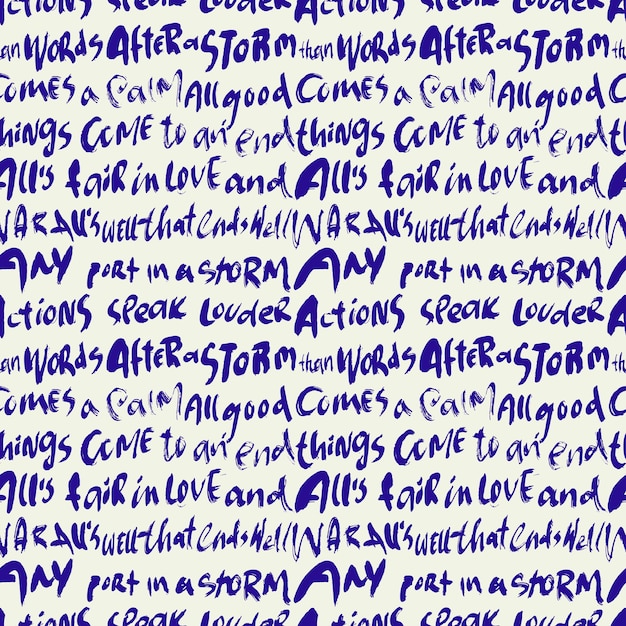 Actions speak louder Actions speak louder
than WORDS AFTER a STORM than WORDS AFTER a STORM th
Comes a CalM All good Comes a CalM All good C
hings COME to an end things COME to an end t
All's faiR in LOVE and All's faiR in LOVE and A
WAR All's well that Ends Well WAR All's well that Ends Well W
ANY port in a STORM ANY port in a STORM A
ActiONS SPeaK LOUDER ActiONS SPeaK LOUDER A
an WORDS AFTER a STORM than WORDS AFTER a STORM th
Comes a CalM All good Comes a CalM All good C
hings COME to an end things COME to an end t
All's faiR in LOVE and All's faiR in LOVE and A
WAR All's well that Ends Well WAR All's well that Ends Well W
ANY port in a STORM ANY port in a STORM A
ActiONS SPeaK LOUDER ActiONS SPeaK LOUDER